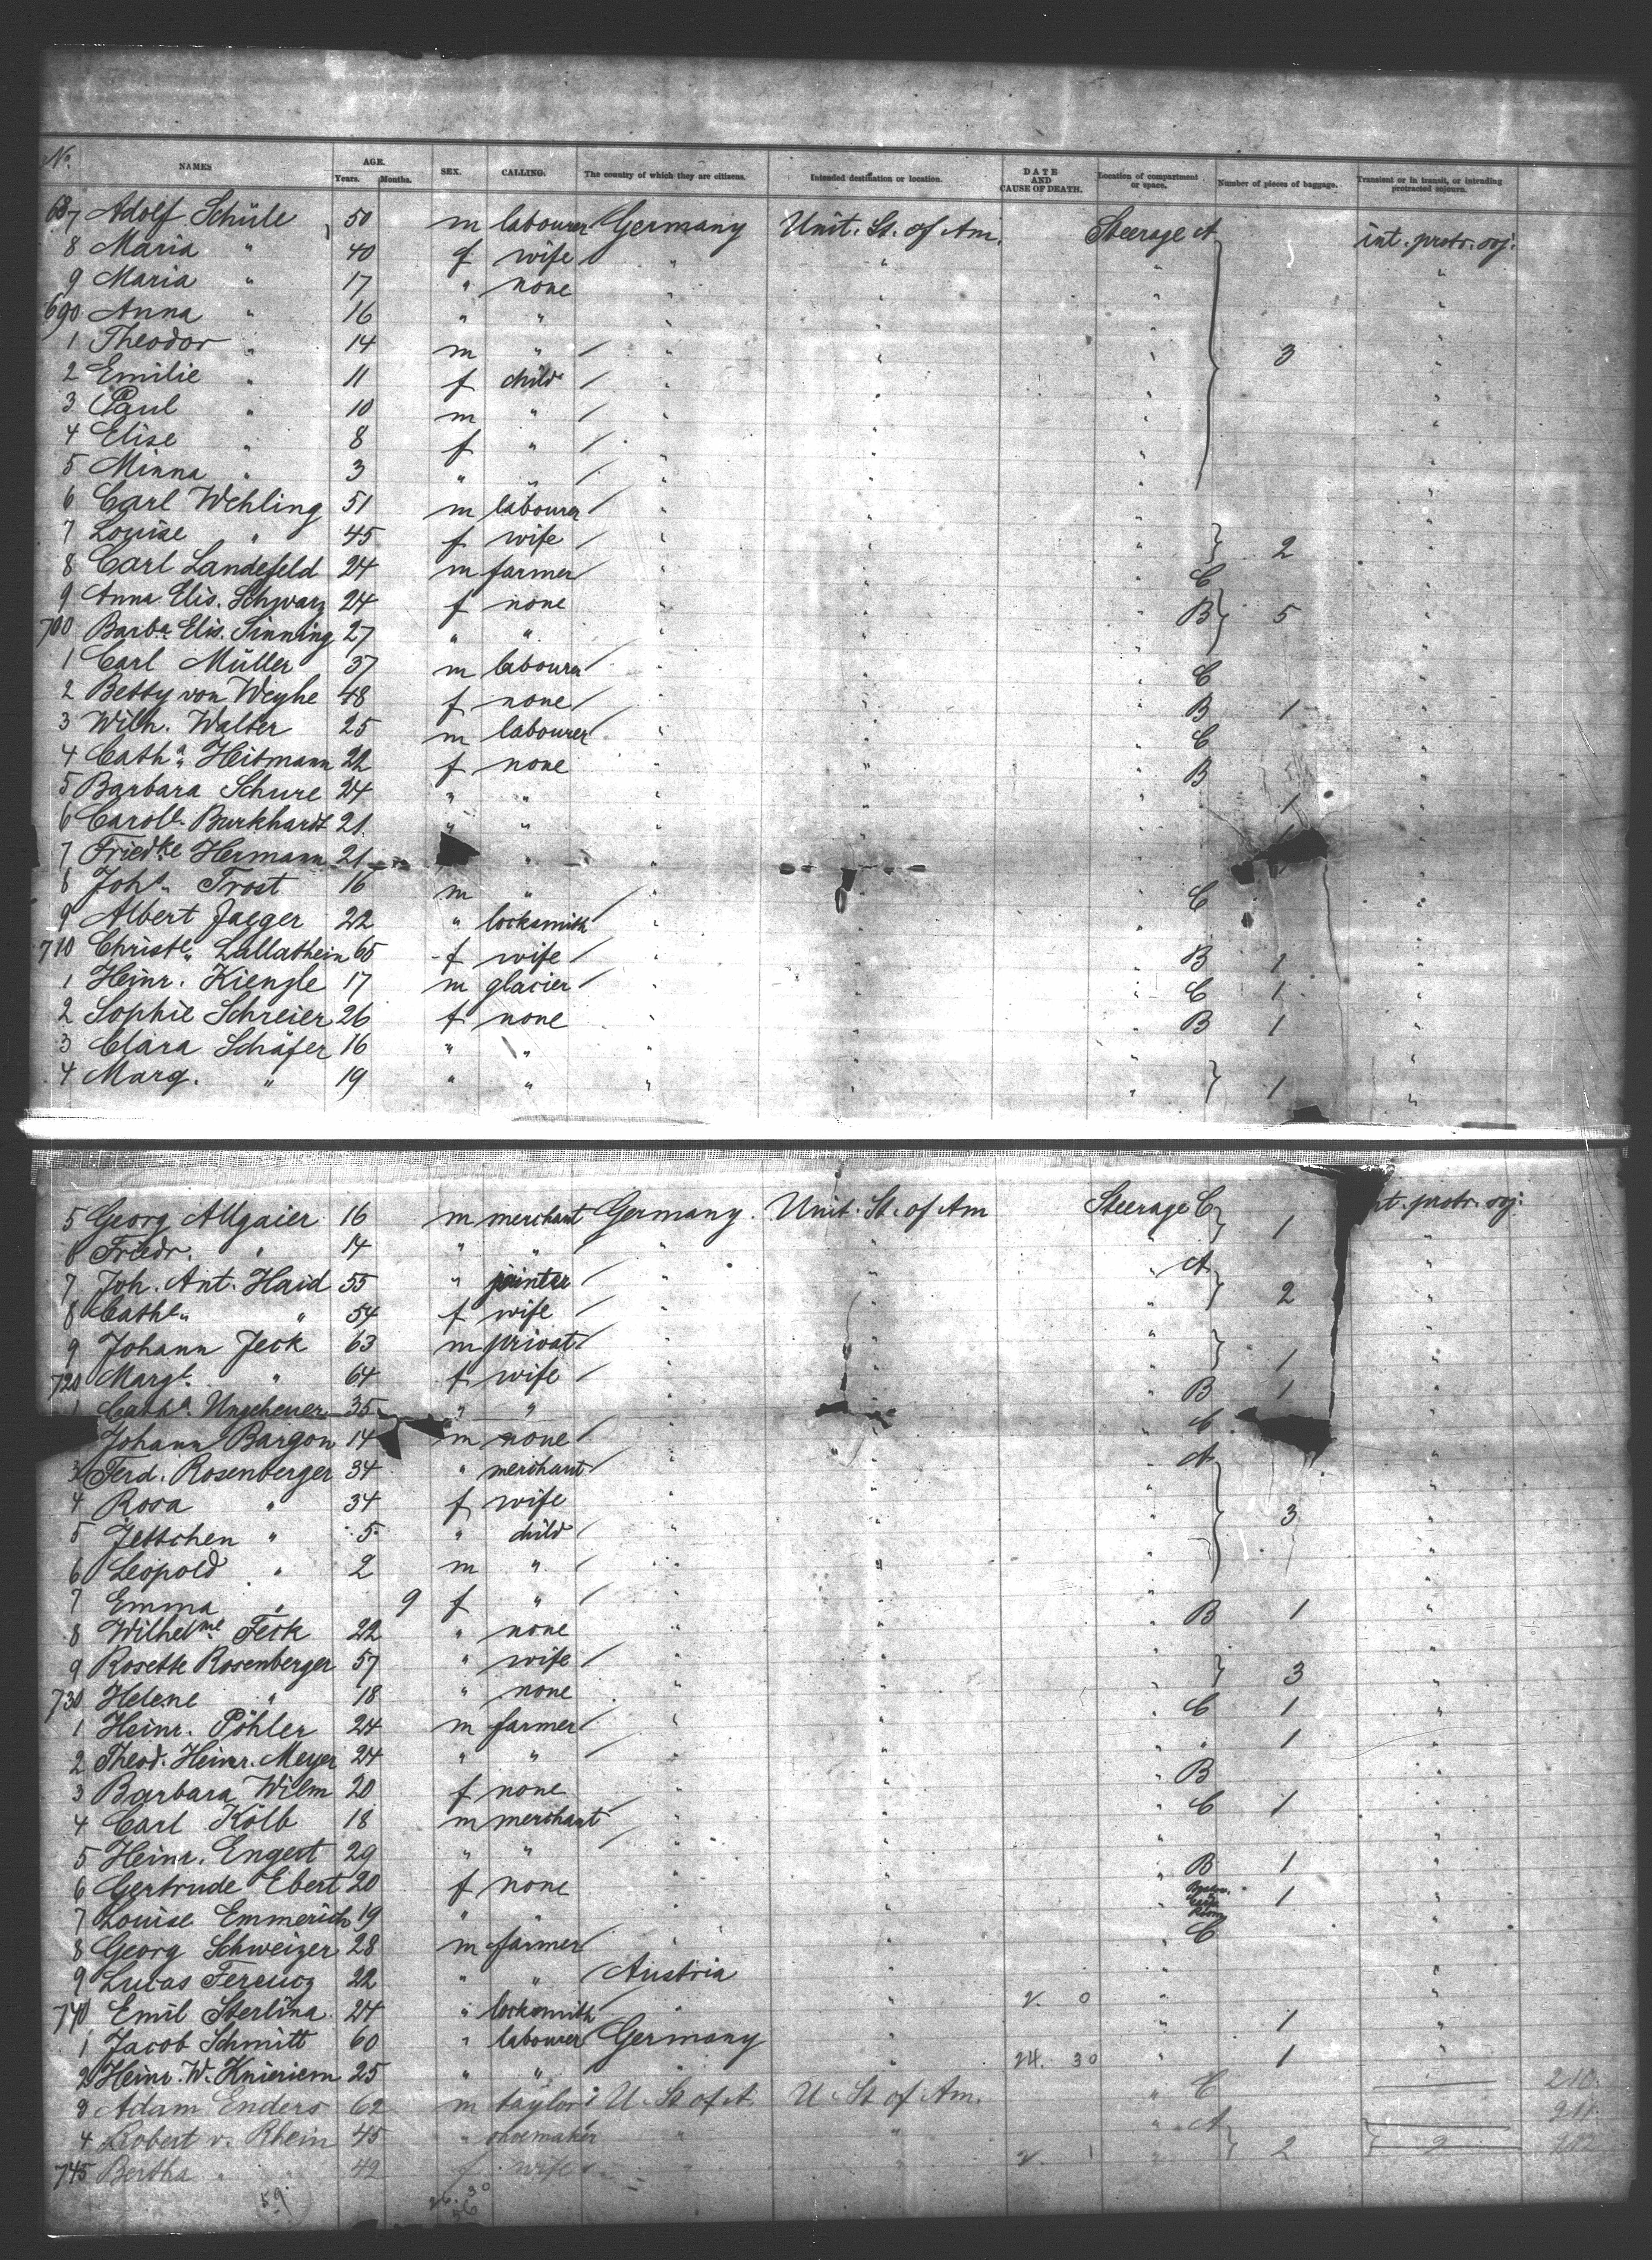 No. NAMES AGE. Years. Months. SEX. CALLING. The country of which they are citizens. Intended destination or location. DATE AND CAUSE OF DEATH. Location of compartment or space. Number of pieces of baggage. Transient or in transit, or intending protracted sojourn.
687 Adolf Schüle 50 m labourer Germany Unit. St. of Am. Steerage A int. protr. soj.
8 Maria " 40 f wife " " " "
9 Maria " 17 " none " " " "
690 Anna " 16 " " " " " "
1 Theodor " 14 m " " " " 3 "
2 Emilie " 11 f child " " " "
3 Paul " 10 m " " " " "
4 Elise " 8 f " " " " "
5 Minna " 3 " " " " " "
6 Carl Wehling 51 m labourer " " " "
7 Louise " 45 f wife " " " 2 "
8 Carl Landefeld 24 m farmer " " " C "
9 Anna Elis. Schwarz 24 f none " " " B 5 "
700 Barbe Elis. Sinning 27 " " " " " "
1 Carl Müller 37 m labourer " " " C "
2 Betty von Weyhe 48 f none " " " B 1 "
3 Wilh. Walter 25 m labourer " " " C "
4 Catha Heitmann 22 f none " " " B "
5 Barbara Schure 24 " " " " " 1 "
6 Carole Burkhardt 21 " " " " "
7 Friedke Hermann 21 " " " "
8 Johs. Trost 16 m " " " " C "
9 Albert Jaeger 22 " locksmith " " " "
710 Christe Lallathein 65 f wife " " " B 1 "
1 Heinr. Kienzle 17 m glacier " " " C 1 "
2 Sophie Schreier 26 f none " " " B 1 "
3 Clara Schäfer 16 " " " " " "
4 Marg. " 19 " " " " " 1 "
5 Georg Allgaier 16 m merchant Germany Unit. St. of Am Steerage C 1 int. protr. soj.
6 Friedr. " 14 " " " " " "
7 Joh. Ant. Haid 55 " " " " A 2 "
8 Cathe " 54 f wife " " " "
9 Johann Jeck 63 m privat " " " "
720 Margt. " 64 f wife " " " 1 "
1 Catha. Ungeheuer 35 " " " " " B 1 "
Johann Bargon 14 m none " " " C "
3 Ferd. Rosenberger 34 " merchant " " " A "
4 Rosa " 34 f wife " " " "
5 Jettchen " 5 " child " " " 3 "
6 Leopold " 2 m " " " " "
7 Emma " 9 f " " " " "
8 Wilhelme Feck 22 " none " " " B 1 "
9 Rosette Rosenberger 57 " wife " " " "
730 Helene " 18 " none " " " 3 "
1 Heinr. Pöhler 24 m farmer " " " C 1 "
2 Theod. Heinr. Meyer 24 " " " " " " 1 "
3 Barbara Wilm 20 f none " " " B "
4 Carl Kolb 18 m merchant " " " C 1 "
5 Heinr. Engert 29 " " " " " "
6 Gertrude Ebert 20 f none " " " B 1 "
7 Louise Emmerich 19 " " " " " 1 "
8 Georg Schweizer 28 m farmer " " " C "
9 Lucas 22 " " Austria " " "
740 Emil Sterlina 24 " locksmith " " " "
1 Jacob Schmitt 60 " labourer Germany " " 1 "
2 Heinr. W. Knieriem 25 " " " " 24. 30 " 1 "
3 Adam Enders 62 m taylor U. St of A. U. St of Am. " C 210.
4 Robert v. Rhein 45 " shoemaker " " " A 211.
745 Bertha " 42 f wife " " " 2 2 212
59 26. 30
56